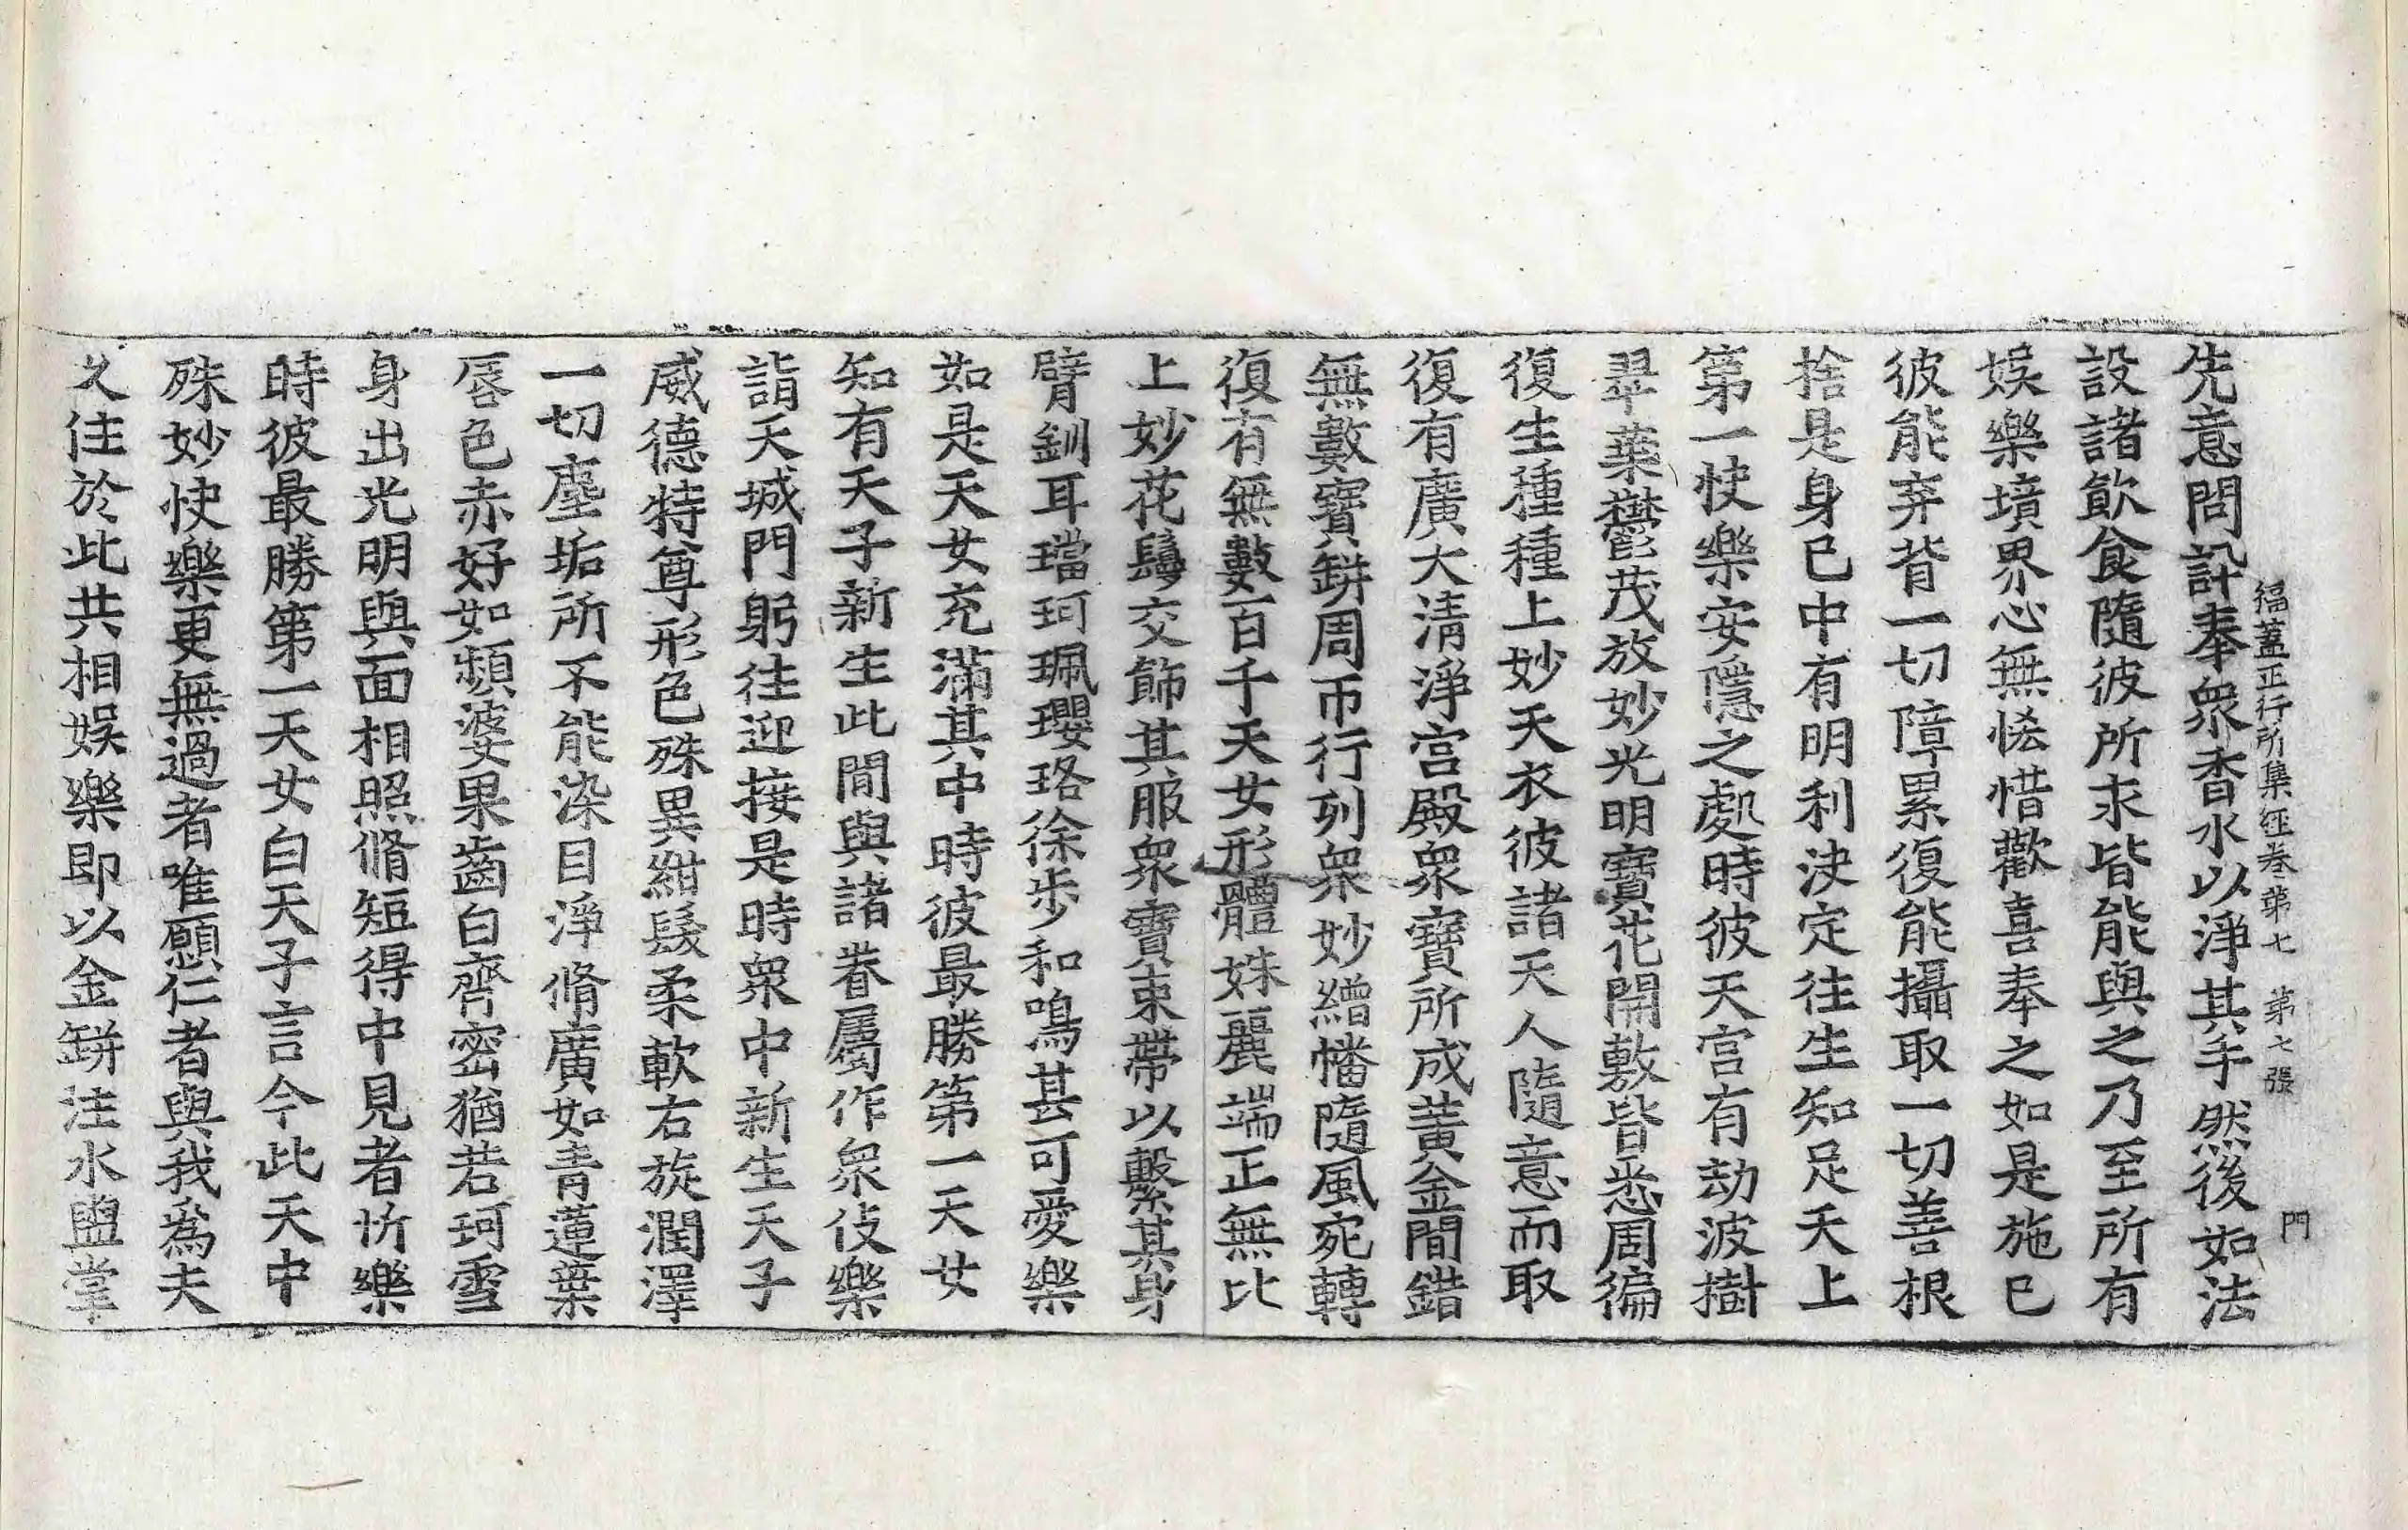 福蓋正行所集經卷第七 第七張 門
先意問訊奉衆香水以淨其手然後如法
設諸飮食隨彼所求皆能與之乃至所有
娛樂境界心無悋惜歡喜奉之如是施已
彼能弃背一切障累復能攝取一切善根
捨是身已中有明利決定往生知足天上
第一快樂安隱之處時彼天宮有劫波樹
翠葉欝茂放妙光明寶花開敷皆悉周徧
復生種種上妙天衣彼諸天人隨意而取
復有廣大淸淨宮殿衆寶所成黃金間錯
無數寶缾周帀行列衆妙繒幡隨風宛轉
復有無數百千天女形體姝麗端正無比
上妙花鬘交飾其服衆寶束帶以繫其身
臂釧耳璫珂珮瓔珞徐步和鳴甚可愛樂
如是天女充滿其中時彼最勝第一天女
知有天子新生此間與諸眷屬作衆伎樂
詣天城門躬往迎接是時衆中新生天子
威德特尊形色殊異紺髮柔軟右旋潤澤
一切塵垢所不能染目淨脩廣如靑蓮葉
脣色赤好如頻婆果齒白齊密猶若珂雪
身出光明與面相照脩短得中見者忻樂
時彼最勝第一天女白天子言今此天中
殊妙快樂更無過者唯願仁者與我爲夫
久住於此共相娛樂卽以金缾注水盥掌